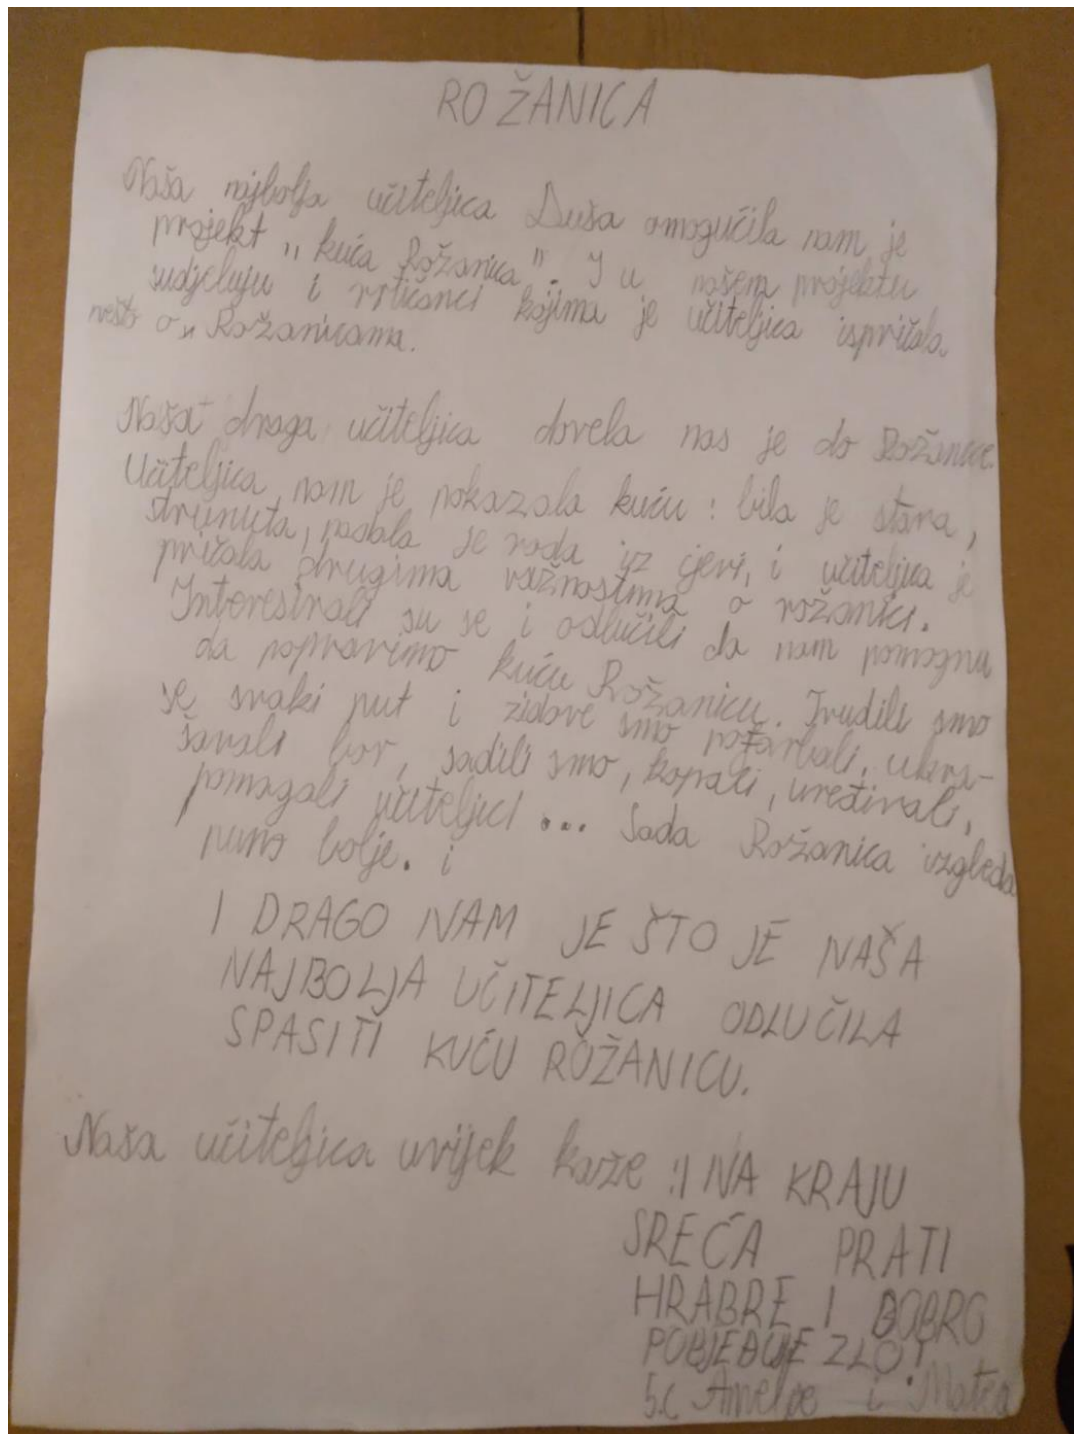 ROŽANICA
Naša najbolja učiteljica Duša omogućila nam je
projekt ,, kuća Rožanica". I u našem projektu
sudjeluju i vrtićanci kojima je učiteljica ispričala
nešto o Rožanicama.
Naša draga učiteljica dovela nas je do Rožanice.
Učiteljica nam je pokazala kuću : bila je stara,
strunuta, padala je voda iz cjevi, i učiteljica je
pričala drugima važnostima o rožanici.
Interesirali su se i odlučili da nam pomognu
da popravimo kuću Rožanicu. Trudili smo
se svaki put i zidove smo pofarbali, ukra-
šavali bor, sadili smo, kopali, uređivali,
pomagali učiteljici ... Sada Rožanica izgleda
puno bolje. i
I DRAGO NAM JE ŠTO JE NAŠA
NAJBOLJA UČITELJICA ODLUČILA
SPASITI KUĆU ROŽANICU.
Naša učiteljica uvijek kaže : I NA KRAJU
SREĆA PRATI
HRABRE I DOBRO
POBJEĐUJE ZLO!
5.c i Matea